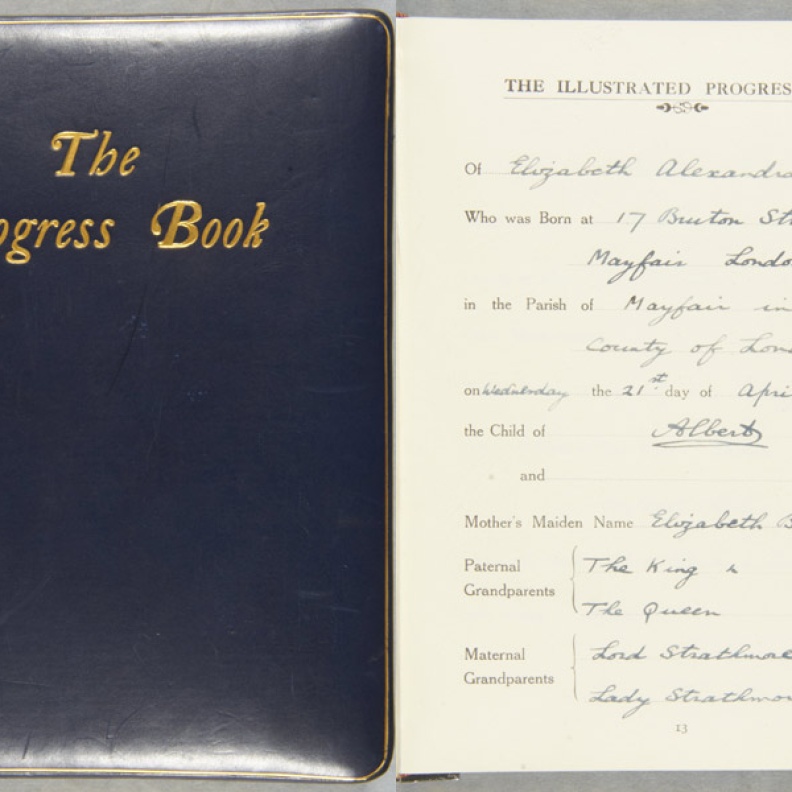 The
ogress Book
THE ILLUSTRATED PROGRES
Of Elizabeth Alexandra
Who was Born at 17 Bruton St
Mayfair London
in the Parish of Mayfair in
County of Lon
on Wednesday the 21st day of Apri
the Child of Albert
and
Mother's Maiden Name Elizabeth B
Paternal Grandparents The King &
The Queen
Maternal Grandparents Lord Strathmore
Lady Strathmor
13